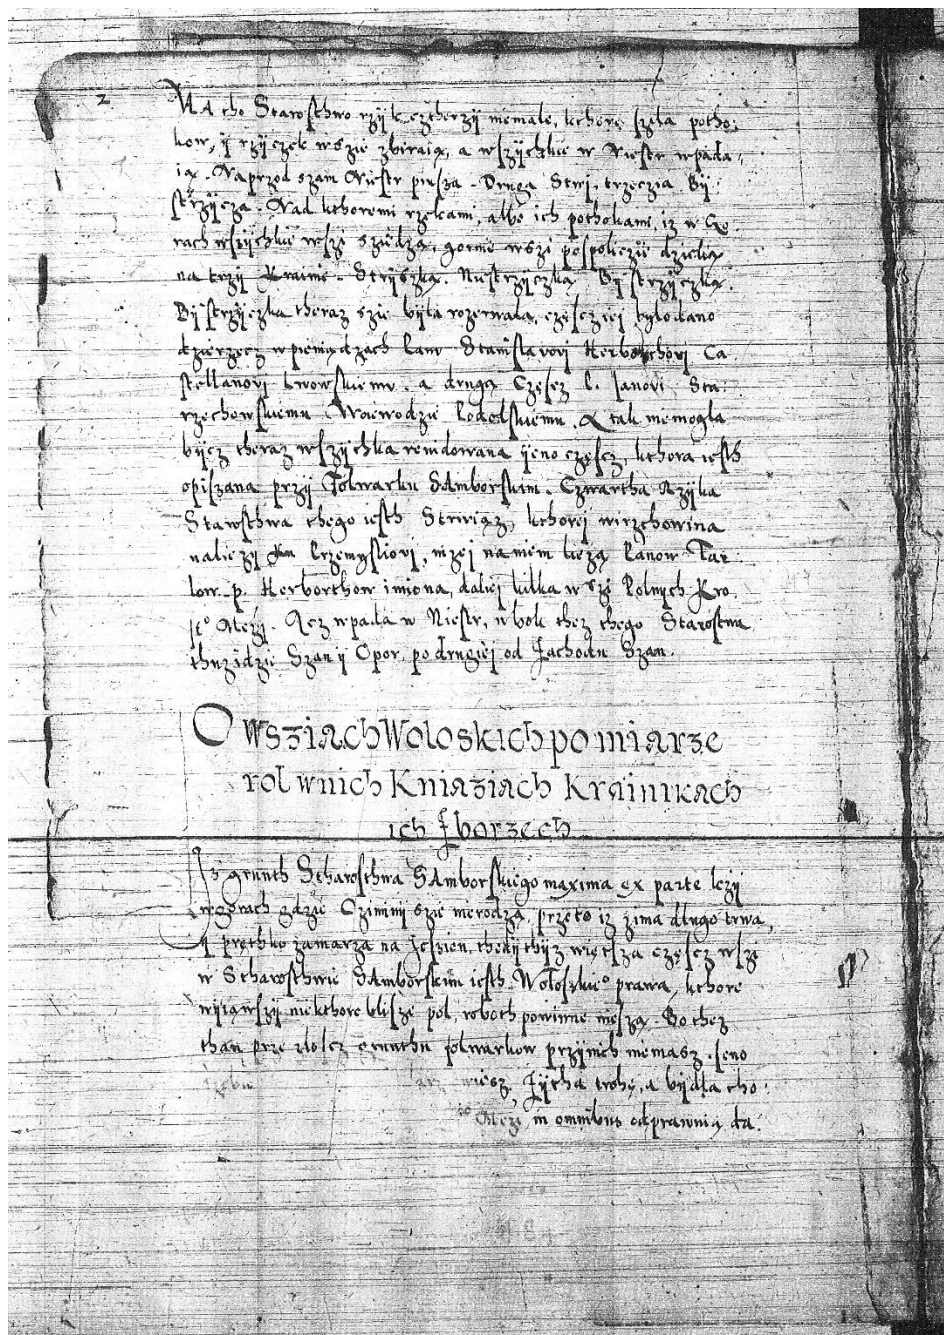 2
NA tho Starosthwo rzÿk cztherzÿ niemale, kthore szĩła potho,
kow, ÿ rzÿczek w szie zbiraią, a wszÿthkie w Niestr wpada,
ią. Naprzod szam Niestr pirsza. Druga Strij, trzeczia Bÿ
strzÿcza. Nad kthoremi rzekami, albo ich pothokami, iz w Go
rach wszÿthkie wszi sziedzą, gorne wszi pospoliczie dzielią
na trzÿ Krainÿ. Strÿszką. Niestrzÿczką Bÿstrzÿczką.
Bÿstrzÿczka theraz szie bÿła rozerwała, częscziej bÿło dano
dzierzecz w pieniądzach Panu Stanisławovi Herborthovi Ca
stellanovi Lwowskiemu. a drugą Częscz P. Janovi Sta
rzechowskiemu Woiewodzie Podolskiemu. A tak niemogła
bÿcz theraz wszÿthka rewidowana ÿeno częscz, kthora iesth
opiszana przÿ Folwarku SAmborskim. Czwartha Rzÿka
Starosthwa thego iesth Strwiąz, kthorej wirzchowina
naliezÿ Przemÿsliovi, nizej na niem lieżą Panow Tar
łow. p. Herborthow imiona, daliej kilka w szi Rolnych Kro.
Jeº Mczi. Acz wpada w Niestr, w bok thez thego Starostwa
thu idzie Szan ÿ Opor, po drugiej od zachodu Szan.
O wsziach Woloskich pomiarze
rol w nich Kniaziach Krainikach
ich zborzech
Iz grunth Stharosthwa SAmborskiego maxima ex parte leżÿ
w gorach gdzie Oziminÿ szie nierodzą, przeto iz zima długo trwa,
ÿ prethko zamarza na Jeszien, thedÿ thÿz więtsza częscz wszi
w Stharosthwie SAmborskim iesth Wołoskieº prawa, kthore
wÿiąwszÿ niekthore blisze pol, roboth powinne nieszą. Bo thez
tham prze złoscz grunthu folwarkow przÿ nich niemasz. Jeno
wiesz, Zÿtha trohę, a bÿdła cho:
Mczi in omnibus odprawuią da: